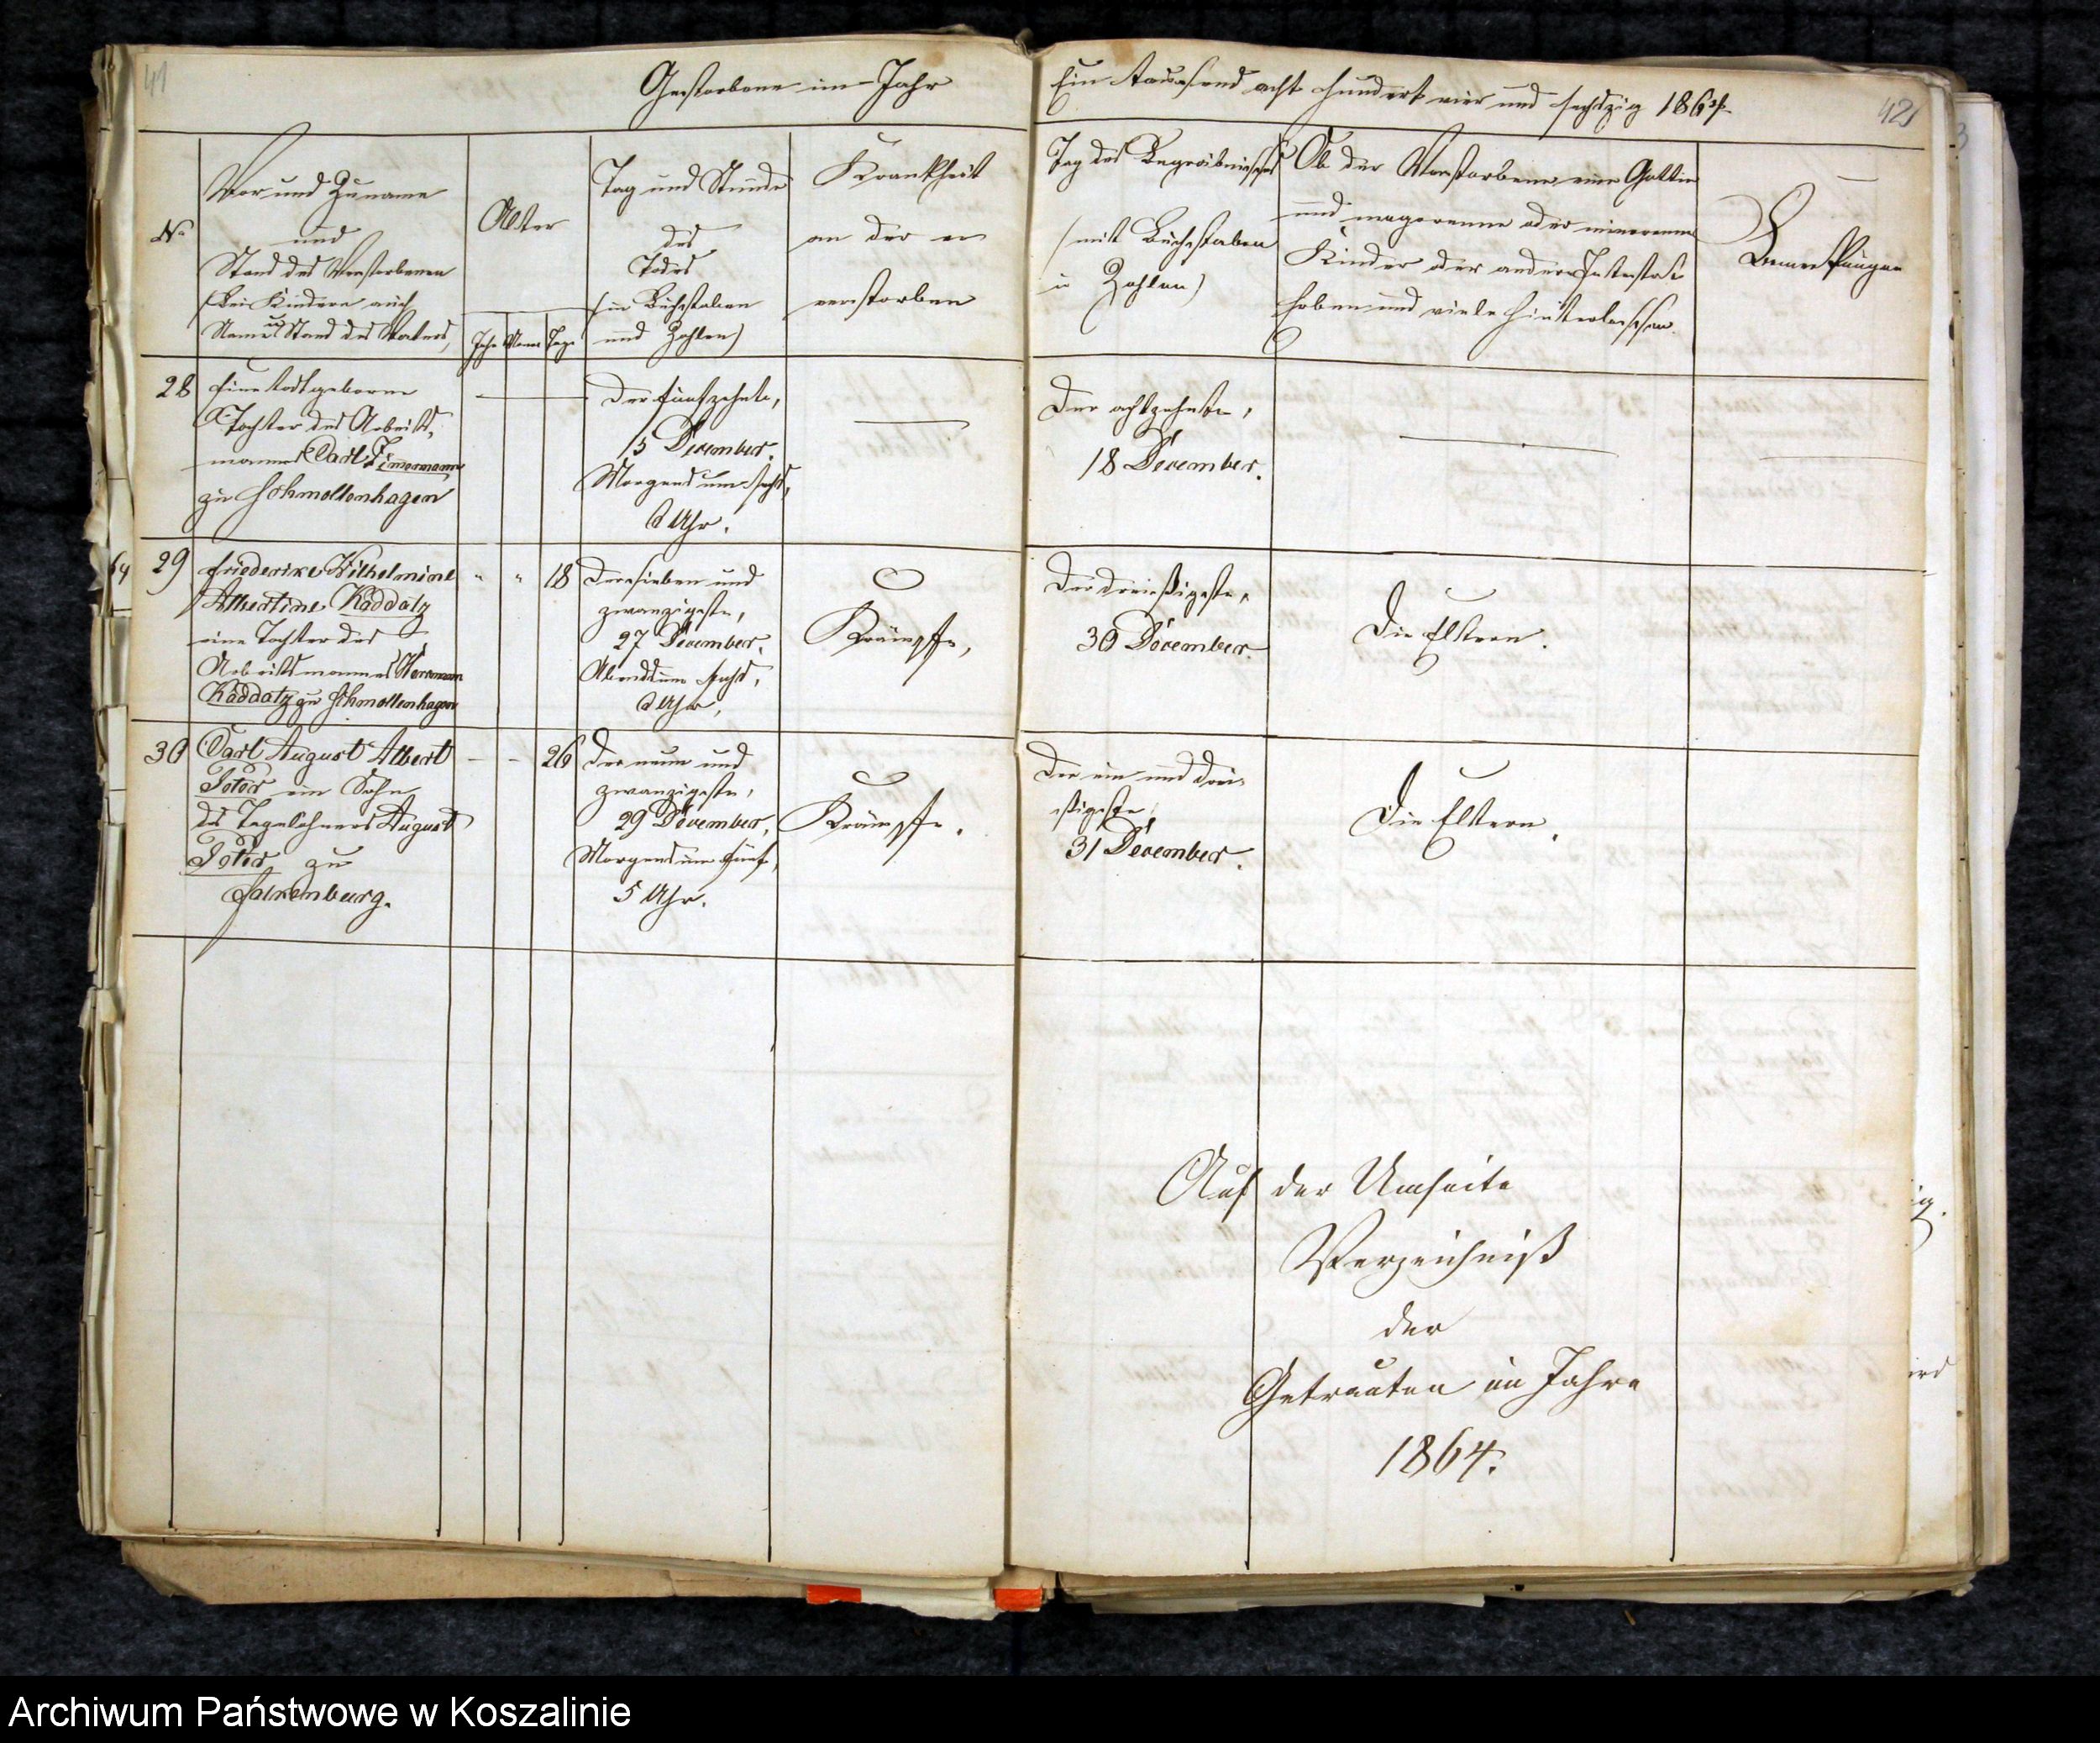 41
Gestorbene im Jahr
Ein tausend acht hundert vier und sechszig 1864
42
No
Vor und Zuname
und
Stand des Verstorbenen
(Bei Kindern auch
Name u Stand des Vaters)
Alter
Jahr Mona Tage
Tag und Stunde
des
Todes
(in Buchstaben
und Zahlen)
Krankheit
an der er
verstorben
Tag des Begräbnisses
(mit Buchstaben
u Zahlen)
Ob der Verstorbene eine Gattin
und majorenne oder minorenne
Kinder oder andere
haben und viele hinterlassen.
Bemerkungen
28
Eine todtgeborne
Tochter des Arbeits-
mannes Carl Zimmermann
zu Schmollenhagen
Der fünfzehnte,
15 December.
Morgens um sechs,
6 Uhr.
Der achtzehnte,
18 December.
64
29
Friederike Wilhelmine
Albertine Raddatz
eine Tochter des
Arbeitsmannes Herrmann
Raddatz zu Schmollenhagen
" " 18
Der sieben und
zwanzigste,
27 December.
Abends um sechs,
6 Uhr,
Krämpfe,
Der dreißigste,
30 December.
Die Eltern.
30
Carl August Albert
ein Sohn
des Tagelöhners August
zu
Falkenburg.
- - 26
Der neun und
zwanzigste,
29 December,
Morgens um fünf,
5 Uhr.
Krämpfe.
Der ein und drei-
ßigste,
31 December.
Die Eltern.
Auf der Umseite
Verzeichniß
der
Getrauten im Jahre
1864.
Archiwum Państwowe w Koszalinie